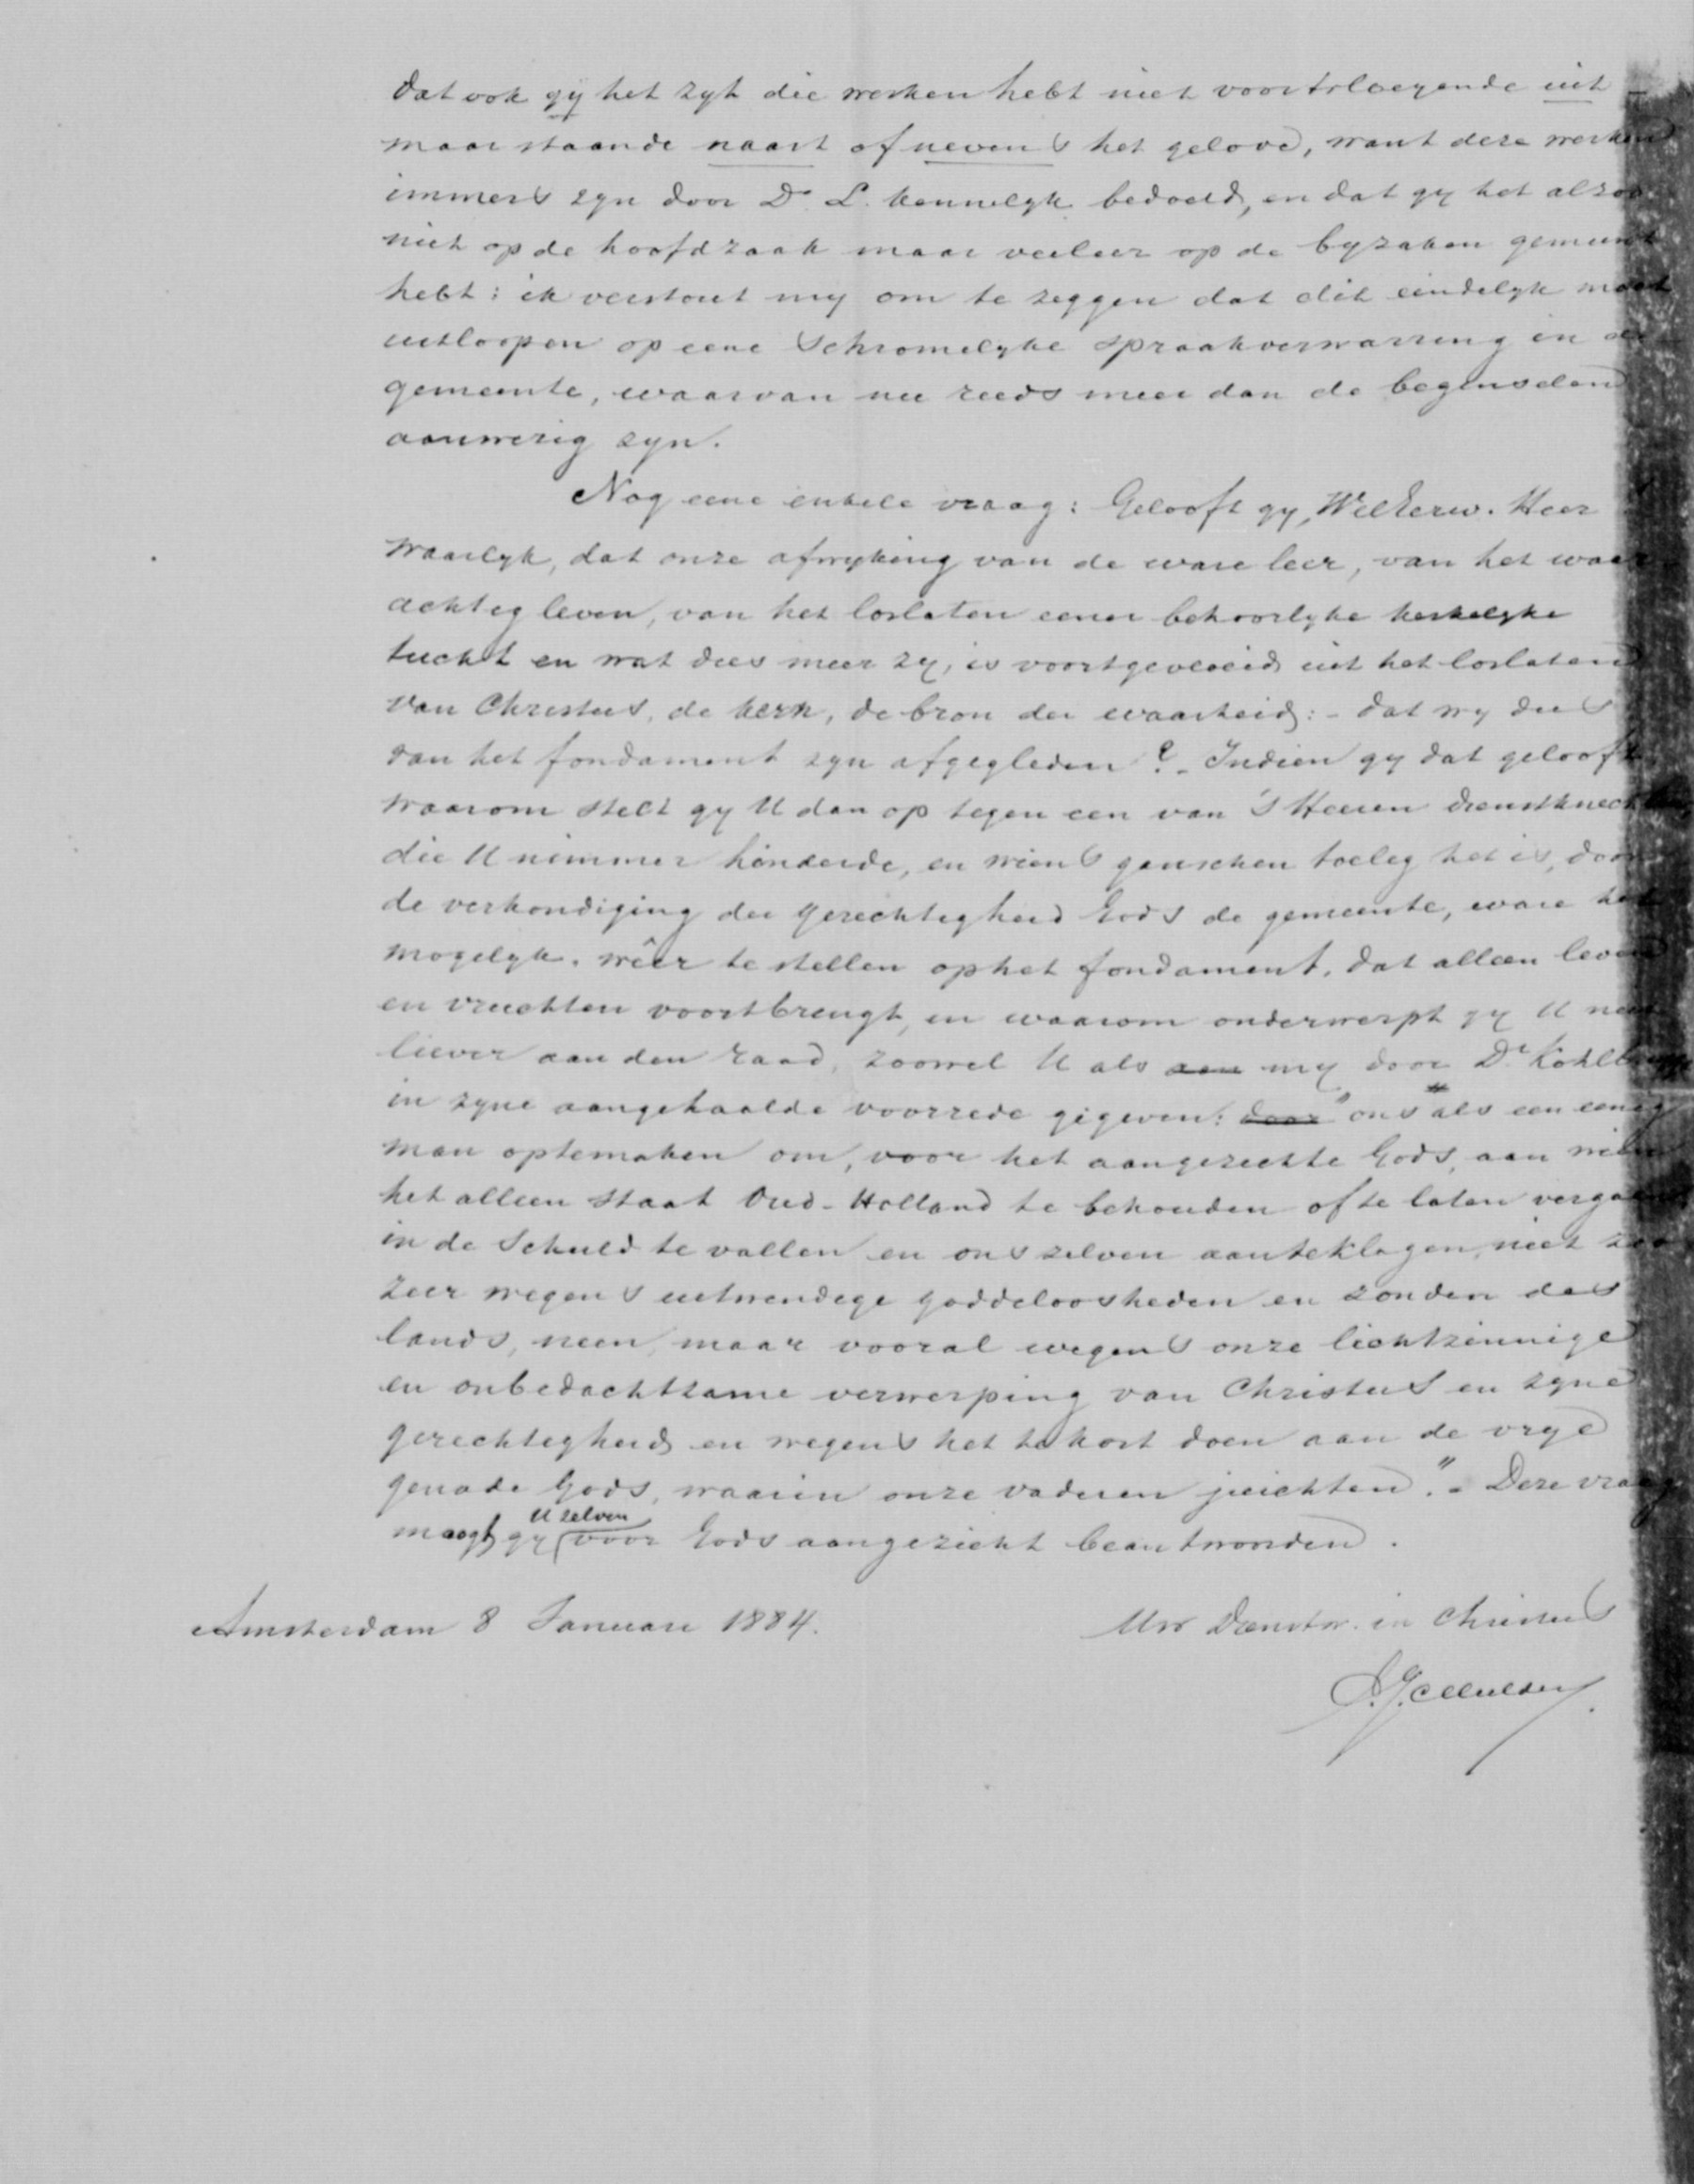 dat ook gy het zyt die werken hebt niet voortvloeyende uit –
maar staande naast of nevens het geloove, want deze werken
immers zyn door Dr. L. kennelyk bedoeld, en dat gy het alzoo
niet op de hoofdzaak maar veeleer op de byzaken gemunt
hebt: ik verstout my om te zeggen dat dit eindelyk moet
uitloopen op eene schromelyke spraakverwarring in de
gemeente, waarvan nu reeds meer dan de beginselen
aanwezig zyn.
Nog eene enkele vraag: Gelooft gy, WelEerw. Heer
waarlyk, dat onze afwyking van de ware leer, van het waar
achtig leven, van het loslaten eener behoorlyke kerkelyke
tucht en wat dies meer zy, is voortgevloeid uit het loslaten
van Christus, de kern, de bron der waarheid: – dat wy dus
van het fondament zyn afgegleden? – Indien gy dat gelooft
waarom stelt gy U dan op tegen een van 's Heeren dienstknechten
die U nimmer hinderde, en wiens ganschen toeleg het is, door
de verkondiging der gerechtigheid Gods de gemeente, ware het
mogelyk, wêer te stellen op het fondament, dat alleen leven
en vruchten voortbrengt, en waarom onderwerpt gy U niet
liever aan den raad, zoowel U als aan my door Dr. Kohlbrugge
in zyne aangehaalde voorrede gegeven: door "ons als een eenig
man optemaken om, voor het aangezichte Gods, aan wien
het alleen staat Oud-Holland te behouden of te laten vergaan
in de schuld te vallen en ons zelven aanteklagen, niet zoo
zeer wegens uitwendige goddeloosheden en zonden des
lands, neen, maar vooral wegens onze lichtzinnige
en onbedachtzame verwerping van Christus en zyne
gerechtigheid en wegens het te kort doen aan de vrye
genade Gods, waarin onze vaderen juichten." – Deze vraag
moogt gy U zelven voor Gods aangezicht beantwoorden.
Amsterdam 8 Januari 1884.
Uw Dienstw. in Christus
Mulder